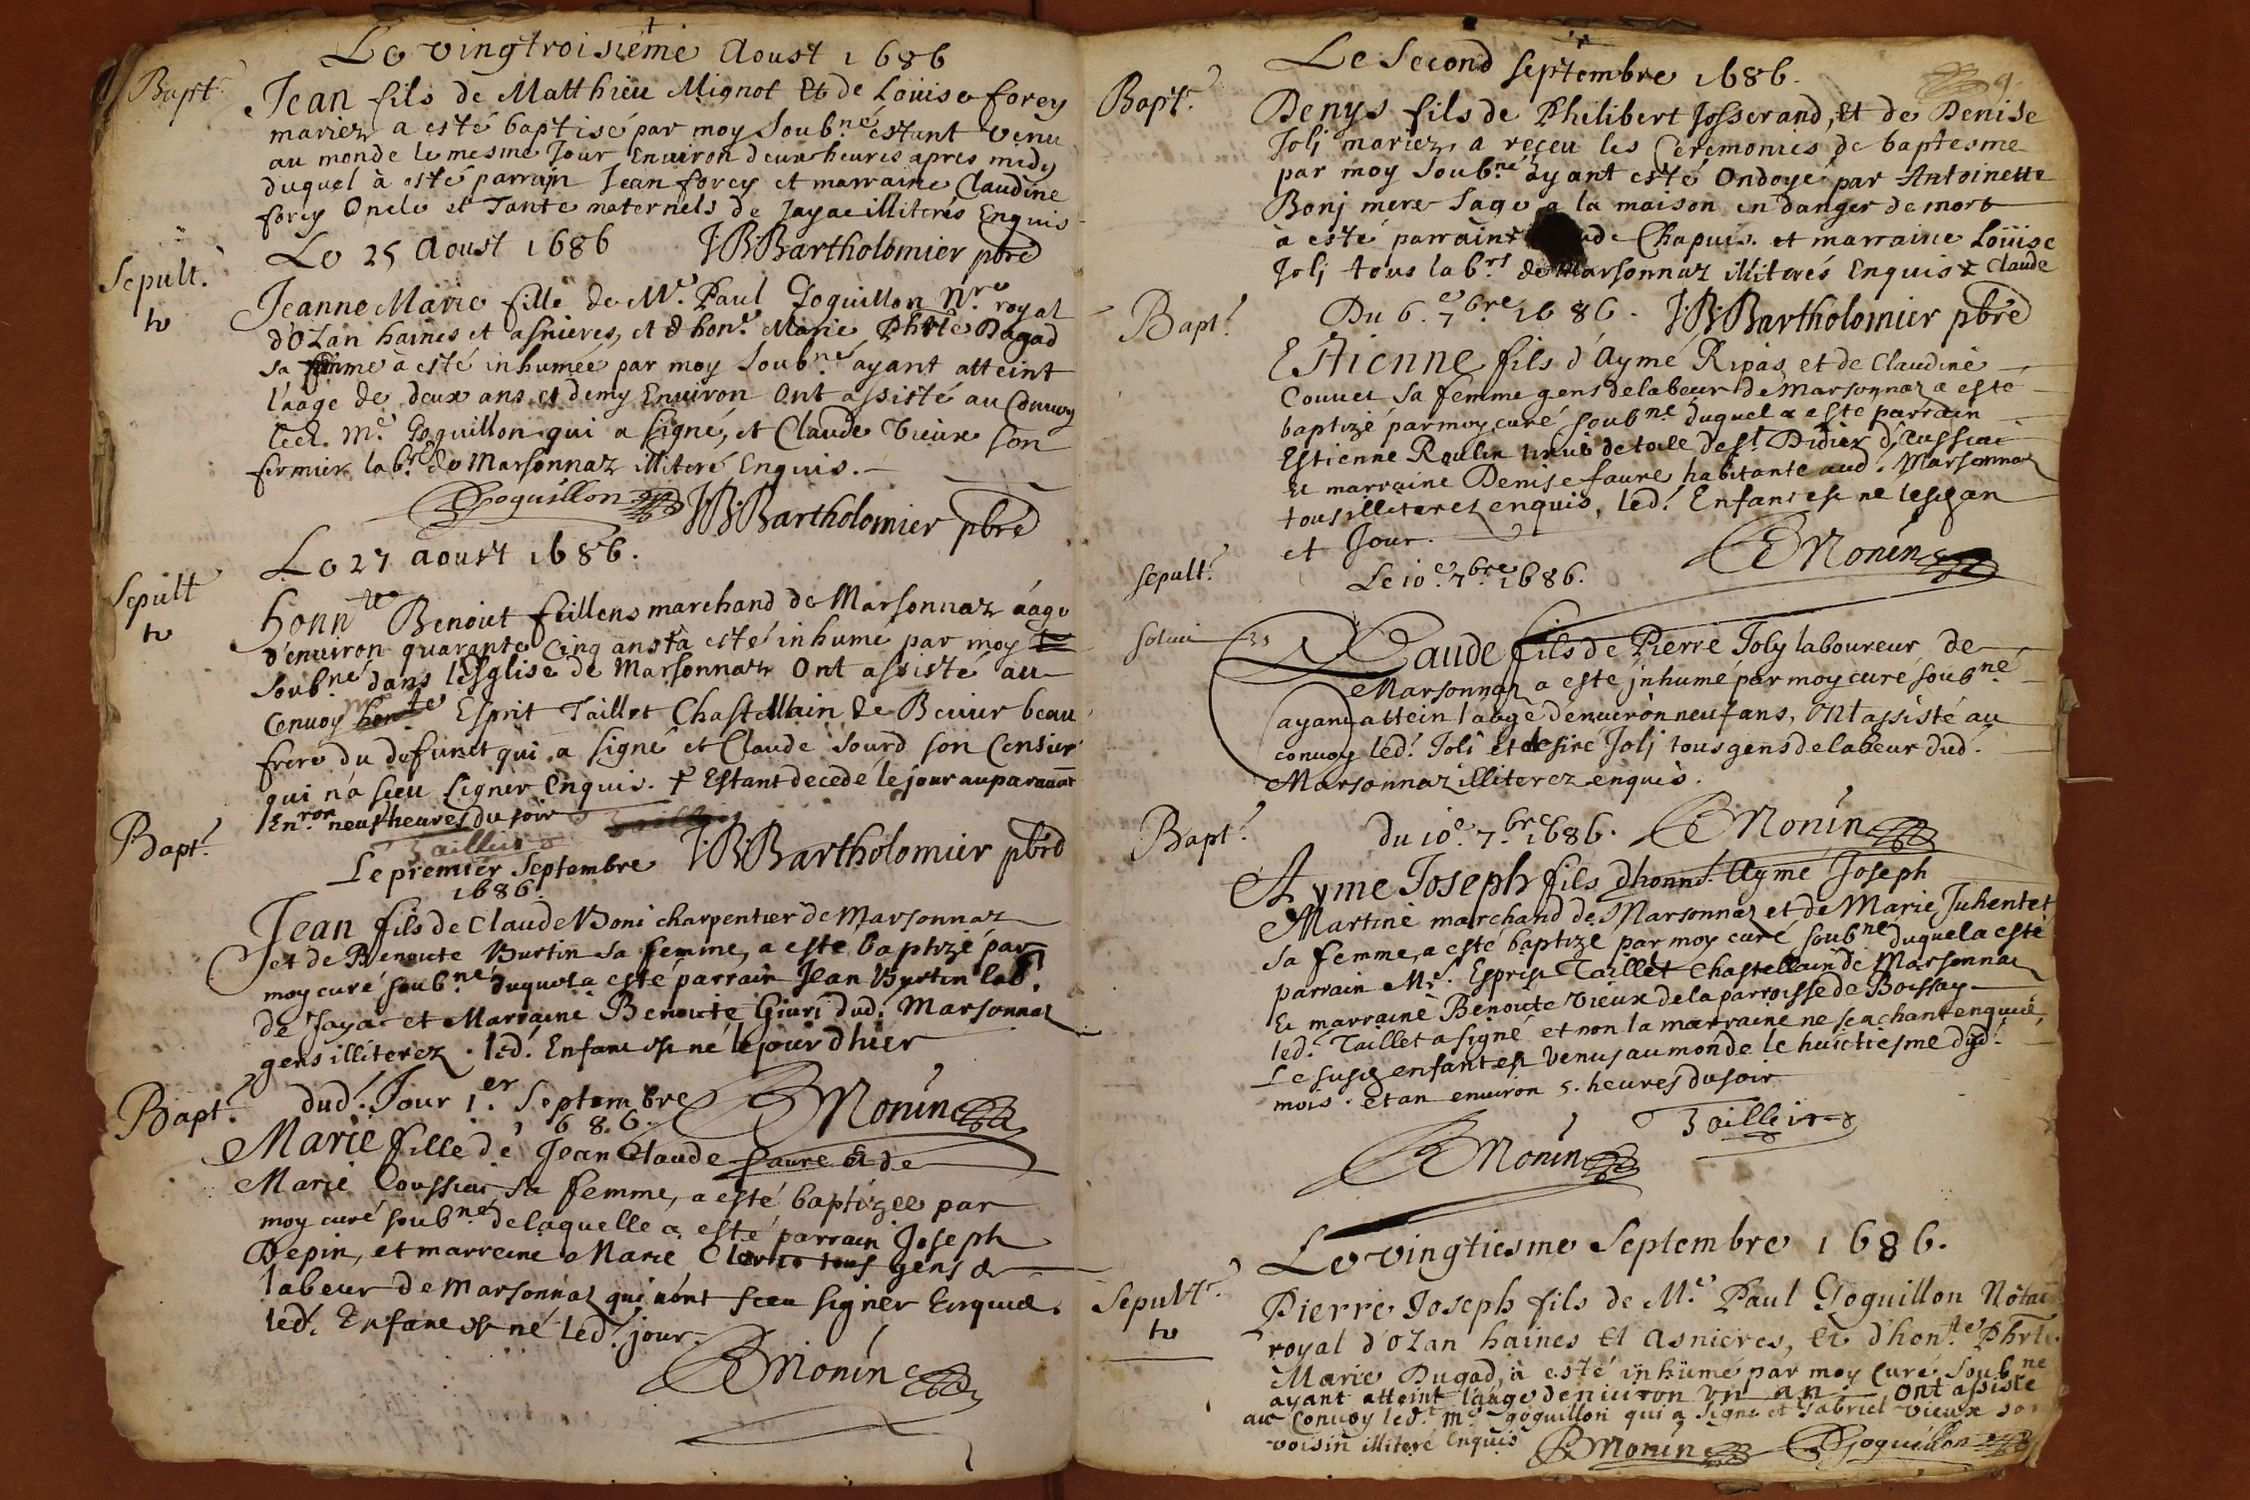 Le vingtroisiéme Aoust 1686
Bapt.
Jean fils de Matthieu Mignot Et de Loüise forey
mariez a esté baptisé par moy Soub.né estant venu
au monde le mesme Jour Enuiron deux heures apres midy
duquel à esté parrain Jean forey et marraine Claudine
forey Oncle et Tante maternels de Jayac illiterés Enquis
Le 25 Aoust 1686 J:B:Bartholomier pbré
Sepult.
tv
Jeanne Marie fille de Me. Paul Goguillon Nre. royal
d'Ozan haines et asnieres, et d hone. Marie Phrte Dugad
sa femme à esté inhumée par moy Soub.né ayant atteint
l'aage de deux ans et demy Enuiron Ont assisté au Conuoy
led. Me. Goguillon qui a signé, et Claude Vieux son
fermier labr. de Marsonnaz illiteré Enquis.
Goguillon J:B:Bartholomier pbré
Le 27 aoust 1686.
Sepult
tv
honnte Benoict feillens marchand de Marsonnaz áagé
d'enuiron quarante Cinq ans† à esté inhumé par moy
Soubné dans l'Esglise de Marsonnaz Ont assisté au
Conuoy honte Esprit Taillet Chastellain de Beuiur beau
frere du defunct qui a signé et Claude Sourd son Censier
qui n'a sceu signer Enquis. † Estant decedé le jour auparauant
En.ron neuf heures du soir
Taillet J:B:Bartholomier pbré
Bapt.
Le premiér Septembre
1686.
Jean fils de Claude Boni charpentier de Marsonnaz
et de Benoite Burtin sa femme, a esté baptizé par
moy curé soub.né duquel a esté parrain Jean Burtin lab.
de Jayac et Marraine Benoite Giuri dud. Marsonnaz
gens illiterez. led. Enfant est né le jour d'hier
Monin
Bapt.
dud. Jour 1.er Septembre
1686.
Marie fille de Jean Claude faure et de
Marie Coussiac sa femme, a esté baptizée par
moy curé soubné de laquelle a esté parrain Joseph
Depin, et marreine Marie Clerc tous gens de
labeur de Marsonnaz qui n'ont sceu signer Enquis.
led. Enfant est né led. jour.
Monin
Le Second septembre 1686.
9.
Bapt.
Denys fils de Philibert Josserand, Et de Denise
Joli mariez, a reçeu les Ceremonies de baptesme
par moy Soub.né ayant esté Ondoyé par Antoinette
Bonj mere Sage a la maison en danger de mort
à esté parrain de Chapuis. et marraine Loüise
Jolj tous labrs. de Marsonnaz illiterés Enquis x Claude
Du 6.e 7.bre 1686. J:B:Bartholomier pbré
Bapt.
EStienne fils d'Aymé Ripas et de Claudine
Couuet sa femme gens de labeur de Marsonnaz a esté
baptizé par moy curé soubné duquel a esté parrain
Estienne Roulin tixié de toile de St. Didier d'Aussiat
Et marraine Denise faure habitante aud. Marsonnaz
tous illiterez enquis, led. Enfant est né lesd. an
et Jour.
Monin
sepult.
Le 10.e 7.bre 1686.
Claude fils de Pierre Joly laboureur de
Marsonnaz a esté jnhumé par moy curé soubné
ayant attein l'aage d'enuiron neuf ans, Ont assisté au
conuoy led. Joli et desiré Jolj tous gens de labeur dud.
Marsonnaz illiterez enquis.
Monin
Bapt.
du 10.e 7.bre 1686.
Ayme Joseph fils d'honn.t Aymé Joseph
Martine marchand de Marsonnaz et de Marie Juhentet
sa femme, a esté baptizé par moy curé soubné duquel a esté
parrain Mr. Esprit Taillet Chastellain de Marsonnaz
Et marraine Benoite Vieux de la parroisse de Boissay
led. Taillet a signé et non la marraine ne sçachant enquise,
Le susd. enfant est venus au monde le huictiesme dud.
mois. et an enuiron 5. heures du soir
Taillet
Monin
Le vingtiesme Septembre 1686.
Sepult.
tv
Pierre Joseph fils de Me. Paul Goguillon Notai
royal d'Ozan haines Et Asnieres, et d'honte Phrte
Marie Dugad, à esté inhumé par moy Curé Soubné
ayant atteint l'aage d'enuiron vn an Ont assisté
au Conuoy led.t Me goguillon qui a signé et Gabriel vieux son
voisin illiteré Enquis Monin Goguillon